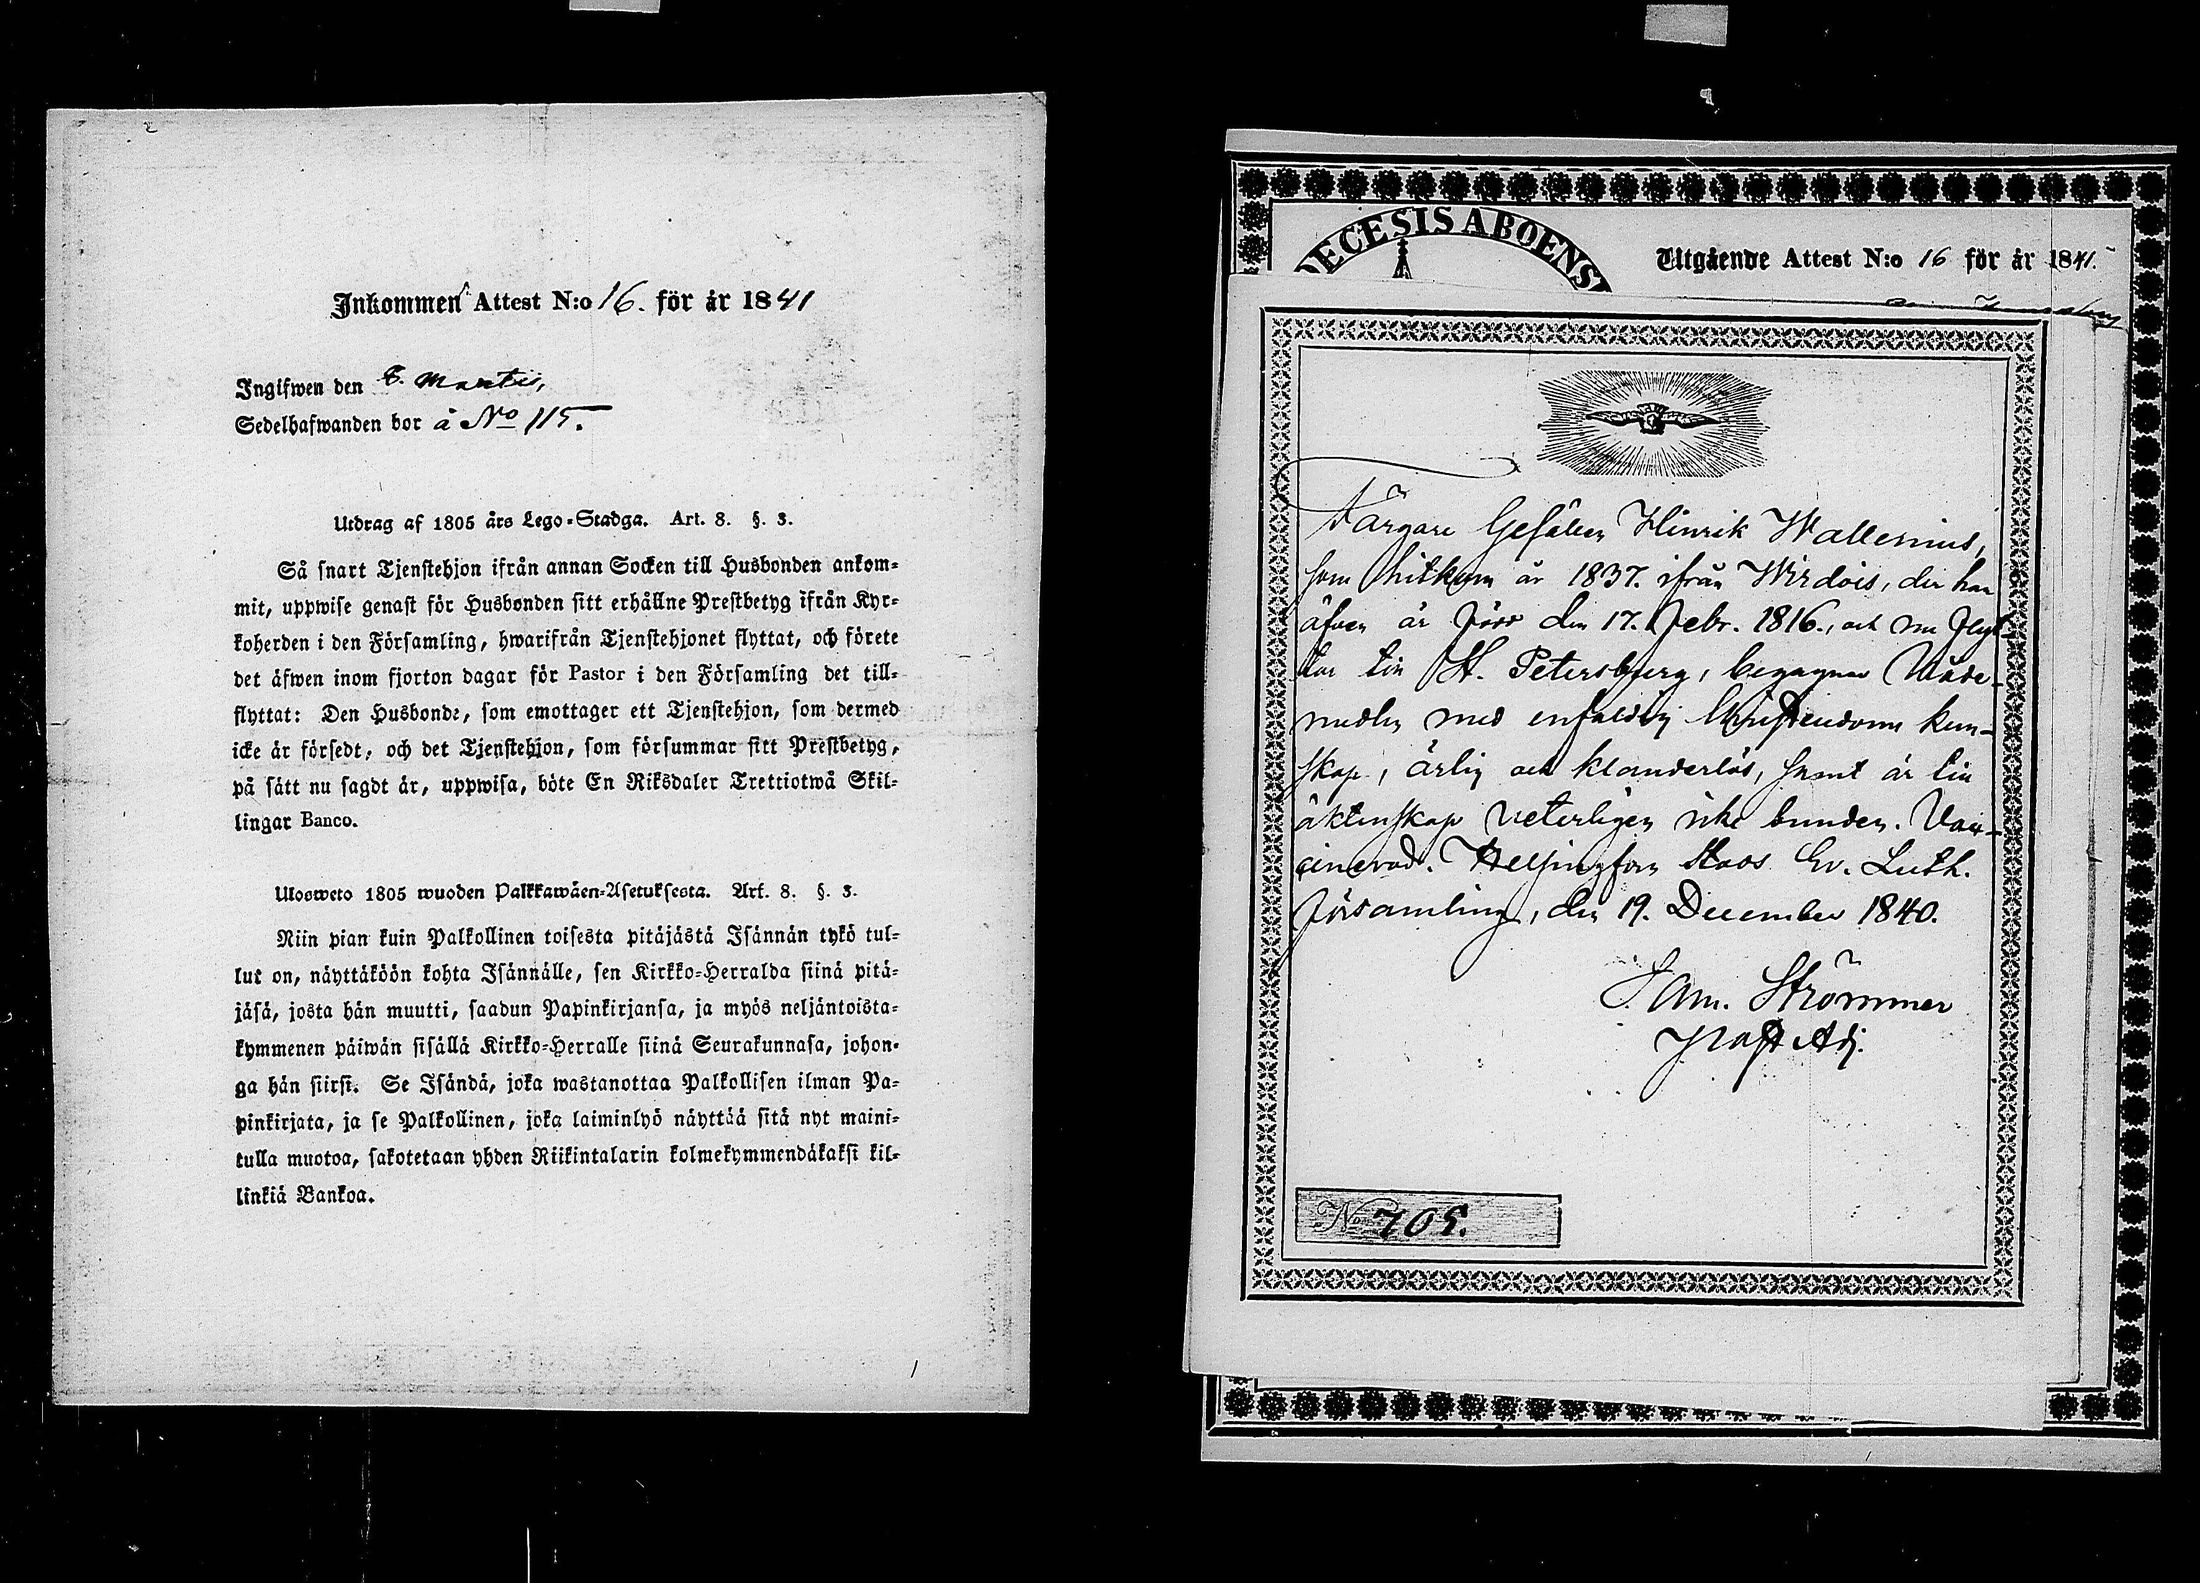 Inkommen Attest N:o 16. för år 1841
Ingifwen den 8. Martii,
Sedelhafwanden bor å No 115.
Utdrag af 1805 års Lego-Stadga. Art. 8. §. 3.
Så snart Tjenstehjon ifrån annan Socken till Husbonden ankom-
mit, uppwise genast för Husbonden sitt erhållne Prestbetyg ifrån Kyr-
koherden i den Församling, hwarifrån Tjenstehjonet flyttat, och förete
det äfwen inom fjorton dagar för Pastor i den Församling det till-
flyttat: Den Husbonde, som emottager ett Tjenstehjon, som dermed
icke är försedt, och det Tjenstehjon, som försummar sitt Prestbetyg,
på sätt nu sagdt är, uppwisa, böte En Riksdaler Trettiotwå Skil-
lingar Banco.
Ulosweto 1805 wuoden Palkkawäen-Asetuksesta. Art. 8. §. 3.
Niin pian kuin Palkollinen toisesta pitäjästä Isännän tykö tul-
lut on, näyttäköön kohta Isännälle, sen Kirkko-Herralda siinä pitä-
jäsä, josta hän muutti, saadun Papinkirjansa, ja myös neljäntoista-
kymmenen päiwän sisällä Kirkko-Herralle siinä Seurakunnasa, johon-
ga hän siirsi. Se Isändä, joka wastanottaa Palkollisen ilman Pa-
pinkirjata, ja se Palkollinen, joka laiminlyö näyttää sitä nyt maini-
tulla muotoa, sakotetaan yhden Riikintalarin kolmekymmendäkaksi kil-
linkiä Bankoa.
ECESIS ABOENS
Utgående Attest N:o 16 för år 1841.
Färgare Gesällen Hinrik Wallenius,
som hitkom år 1837. ifrån Wirdois, der han
äfven är född den 17. Febr. 1816., och nu flyt-
tar till St. Petersburg, begagnar Nåde-
medlen med enfaldig Christendoms kun-
skap, ärlig och klanderlös, samt är till
äktenskap veterligen icke bunden. Vac-
cinerad. Helsingfors Stads Ev. Luth.
Församling, den 19. December 1840.
Sam. Strömmer
Past Adj.
No 705.